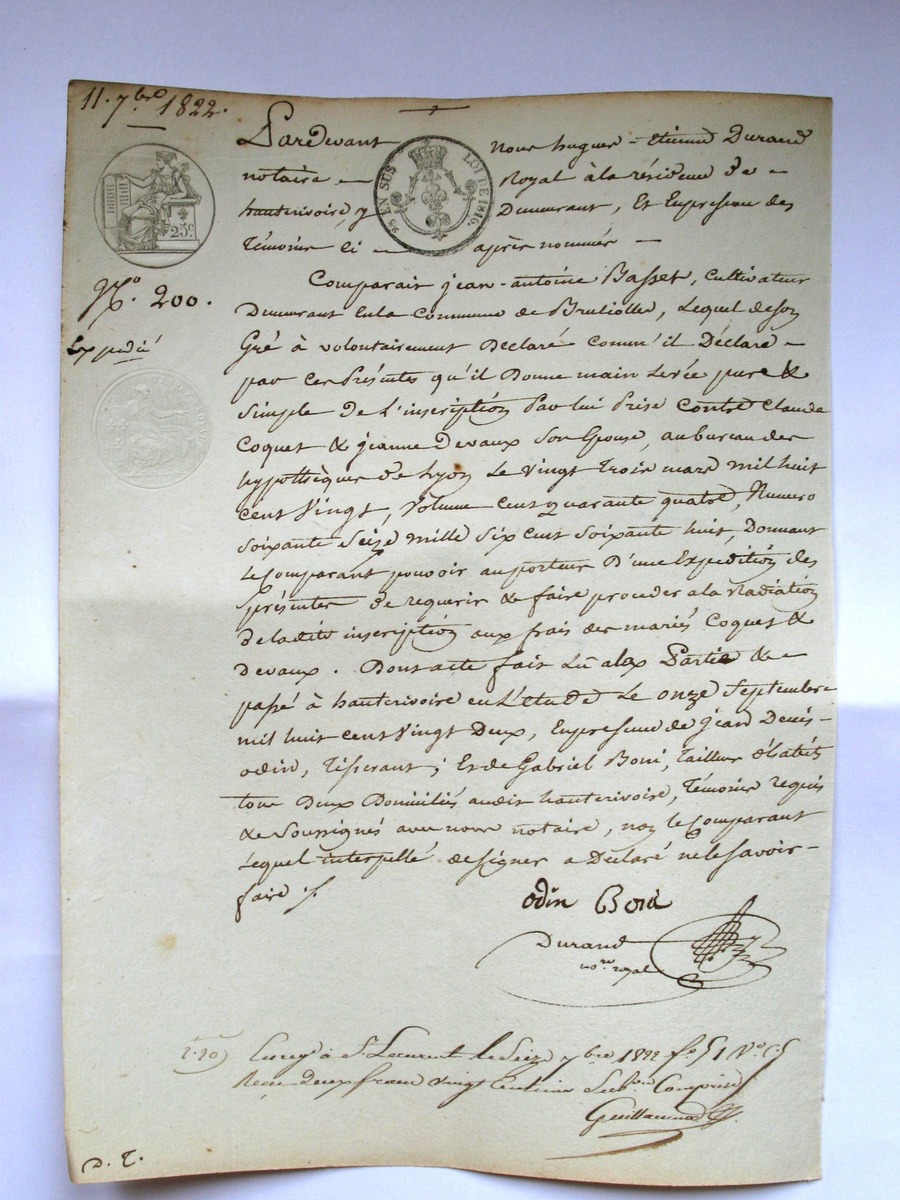 11. 7bre 1822.
Pardevant nous hugues-etienne Durand
notaire Royal à la résidence de
hauterivoire, y Demeurant, Et En presence des
Témoins ci après nommés
25 EN SUS LOI DE 1816.
25c
No. 200.
Expédié
Comparait jean-antoine Basset, Cultivateur
Demeurant En la Commune de Brulliolles, Lequel de son
Gré à volontairement Déclaré comm'il Déclare
par ces Présentes qu'il Donne main Levée pure &
Simple De L'inscription Par lui Prise Contre Claude
Coquet & jeanne Devaux Son Epouse, au bureau des
hypothèques de Lyon Le Vingt Trois mars mil huit
cent Vingt, Volume Cent quarante quatre, Numero
Soixante Seize mille Six Cent Soixante huit, Donnant
Le Comparant pouvoir au porteur D'une Expedition des
présentes de requerir & faire proceder a la Radiation
De la dite inscription aux frais des mariés Coquet &
Devaux. Dont acte fait Lu aux Partie &
passé à hauterivoire en L'étude Le onze Septembre
mil huit cent Vingt Deux, En presence de Jean Denis
odin, Tisserant; Et de Gabriel Boni, Tailleur d'habits
tous Deux Domiciliés audit hauterivoire, Témoins requis
& Soussignés avec nous notaire, non le Comparant
Lequel interpellé de signer a Déclaré ne le Savoir
faire ./.
odin
Durand
nore royal
2.20
Enregé à St Laurent le Seize 7bre 1822 fo 51 Vo C.5
Reçu Deux francs vingt Centimes Subon Compris
D. T.